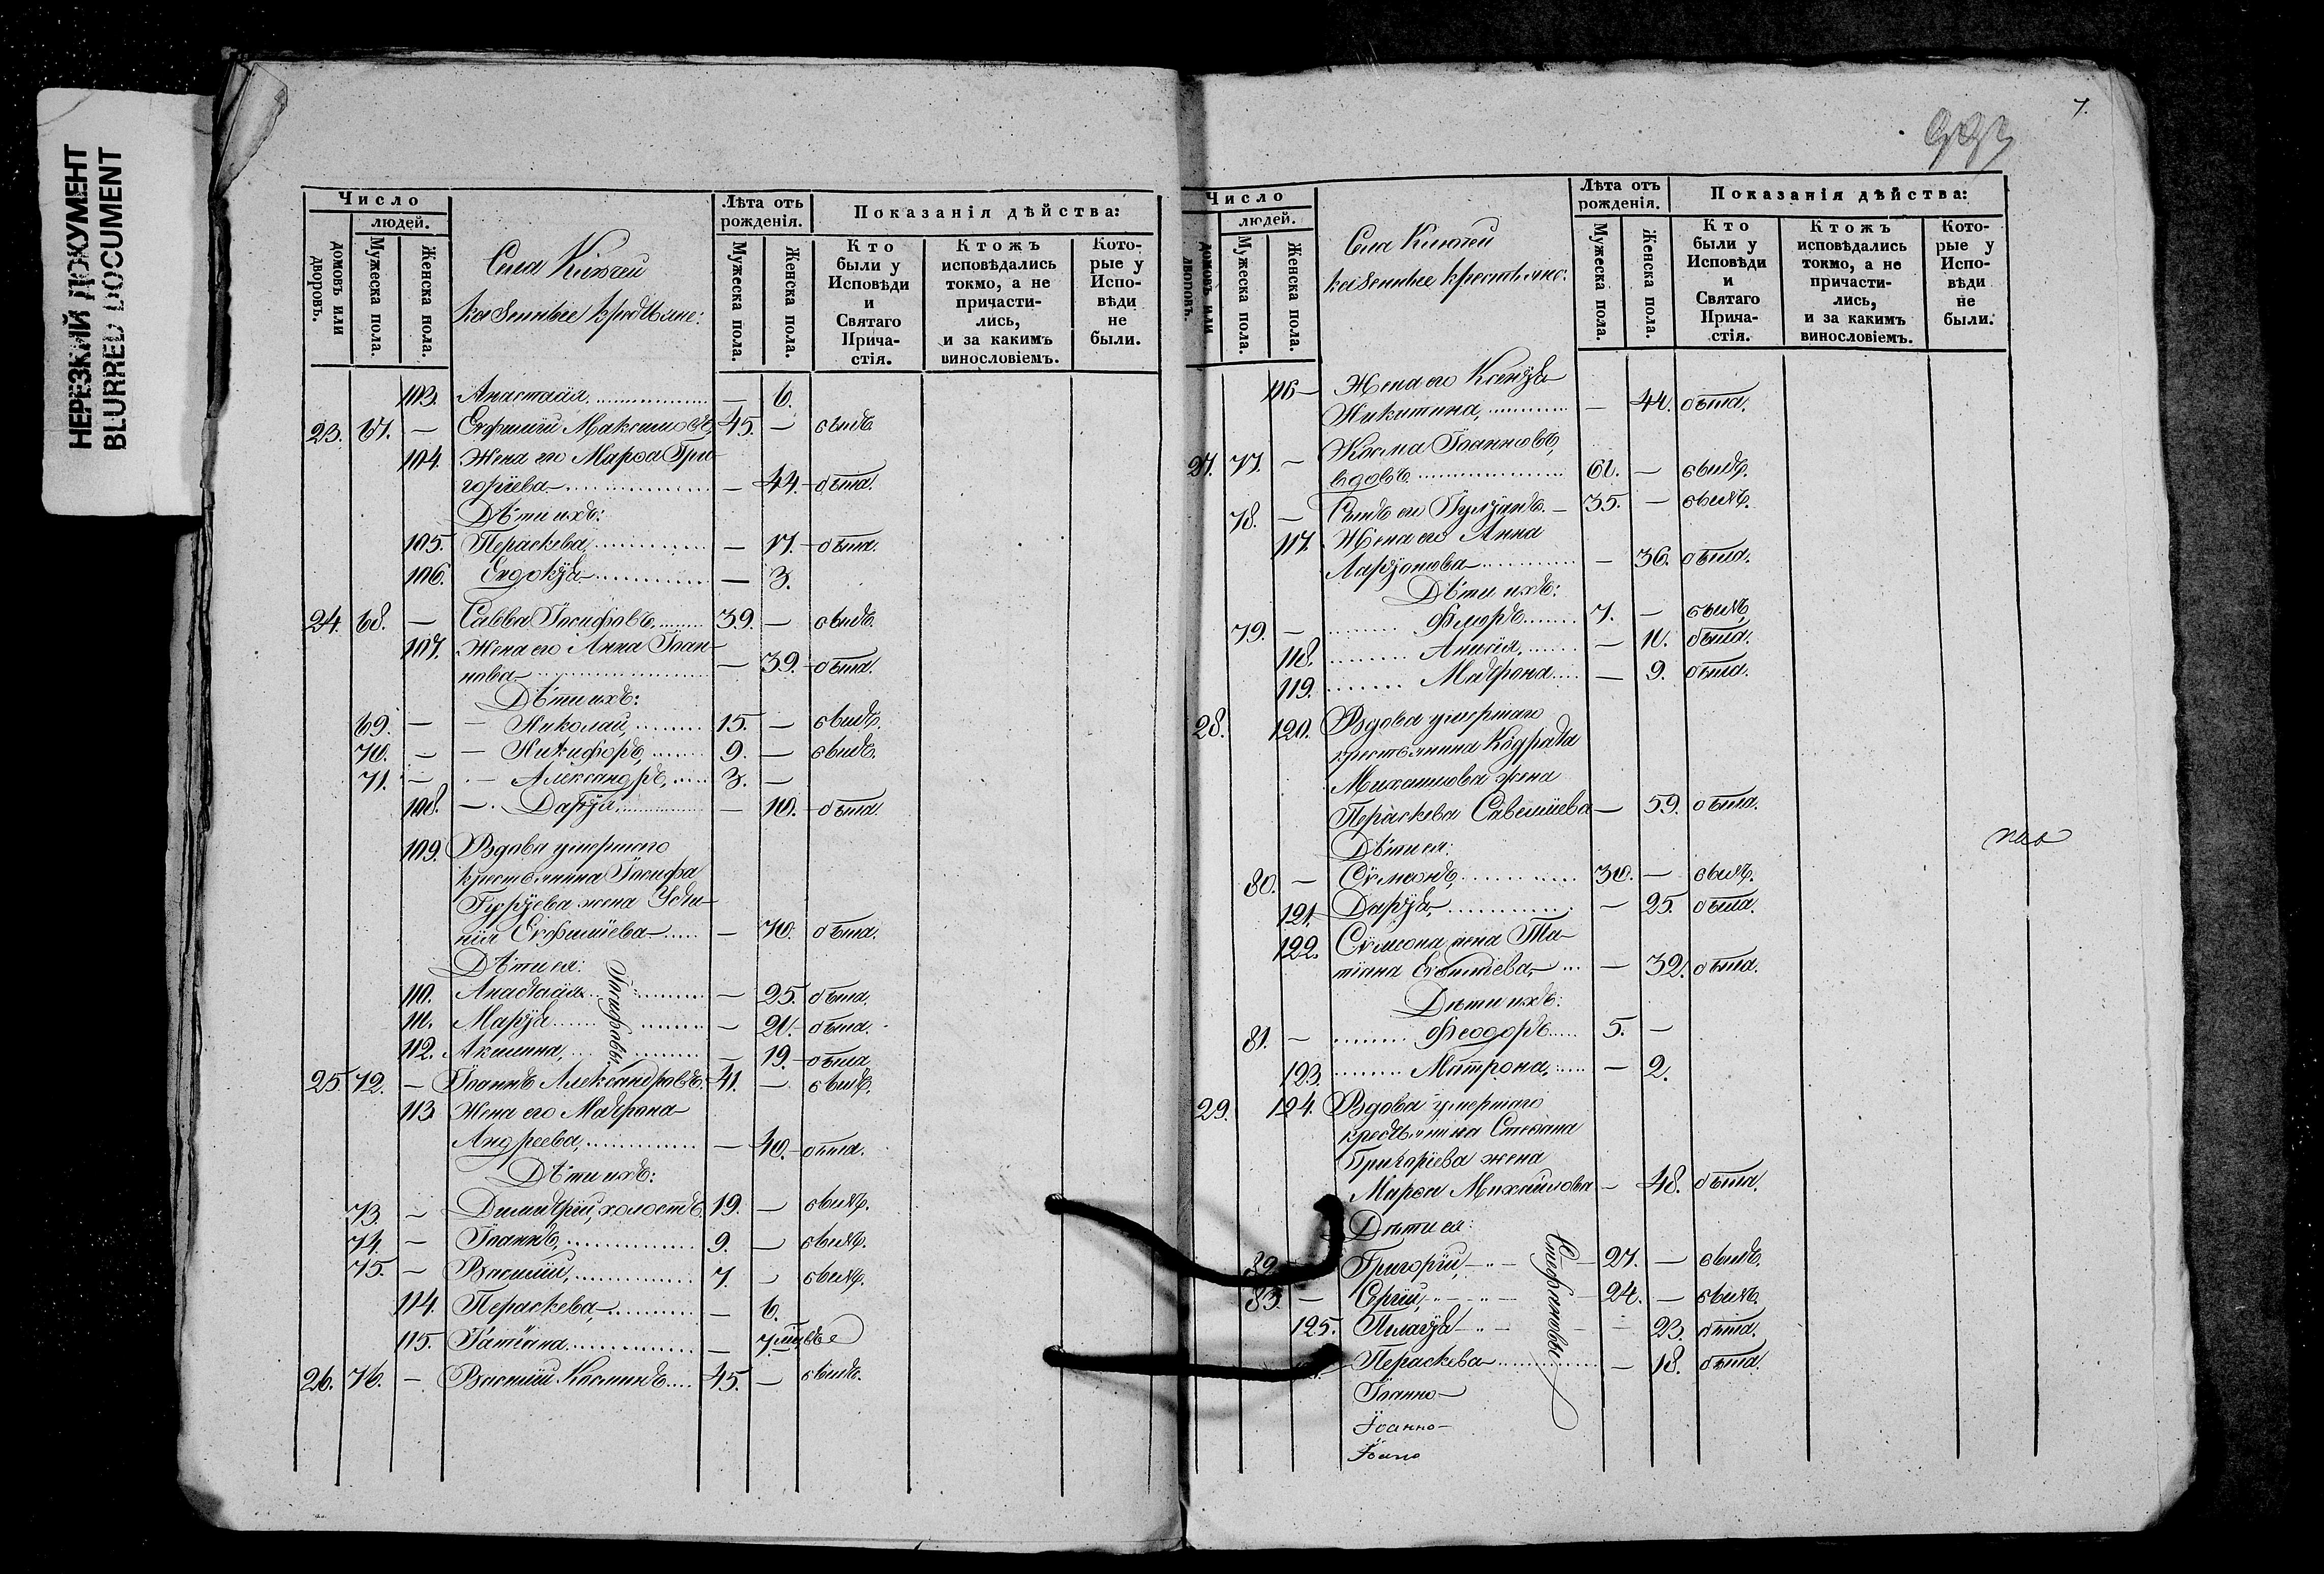 НЕРЕЗКИЙ ДОКУМЕНТ
BLURRED DOCUMENT
Число
людей.
домовъ или дворовъ.
Мужеска пола.
Женска пола.
Села Ключей
казенные крестьяне:
Лѣта отъ рожденія.
Мужеска пола.
Женска пола.
Показанія дѣйства:
Кто были у Исповѣди и Святаго Прича-стія.
Ктожъ исповѣдались токмо, а не причасти-лись, и за какимъ винословіемъ.
Кото-рые у Испо-вѣди не были.
103. Анастасія — 6.
23. 67. — Евфимій Максимовъ, 45. — былъ
104. Жена его Марѳа Гри-
горіева — 44. была.
Дѣти ихъ:
105. Параскева, — 17. была.
106. Евдокія — 3.
24. 68. — Савва Іосифовъ, 39. — былъ.
107. Жена его Анна Іоан-
нова — 39. была.
Дѣти ихъ:
69. — — Николай, 15. — былъ.
70. — — Никифоръ, 9. — былъ.
71. — — Александръ, 3. —
108. — Дарія — 10. была.
109. Вдова умершаго
крестьянина Іосифа
жена Усти-
нія Евфиміева — 70. была.
Дѣти ея:
110. Анастасія — 25. была.
111. Марія — 21. была.
112. Акилина, — 19. была
Іосифовы
25. 72. — Іоаннъ Александровъ. 41. — былъ.
113 Жена его Матрона
Андреева, — 40. была.
Дѣти ихъ:
73. — Димитрій, холостъ. 19. — былъ.
74. — Іоаннъ, 9. — былъ.
75. — Василій, 7. — былъ.
114. Параскева, — 6.
115. Татіана —
26. 76. — Василій Косминъ 45. — былъ.
7.
Число
людей.
домовъ или дворовъ.
Мужеска пола.
Женска пола.
Села Ключей
казенные крестьяне:
Лѣта отъ рожденія.
Мужеска пола.
Женска пола.
Показанія дѣйства:
Кто были у Исповѣди и Святаго Прича-стія.
Ктожъ исповѣдались токмо, а не причасти-лись, и за какимъ винословіемъ.
Кото-рые у Испо-вѣди не были.
116 — Жена его Ксенія
Никитина, — 44. была.
27. 77. — Косма Іоанновъ,
вдовъ 61. — былъ.
78. — Сынъ его Іуліанъ. — 35. — былъ.
117. Жена его Анна
Ларіонова — 36. была.
Дѣти ихъ:
79. — Флоръ 7. — былъ,
118. Анисія, — 11. была.
119. Матрона — 9. была.
28. 120. Вдова умершаго
крестьянина Кодрата
Михаилова жена
Параскева Савеліева — 59. была.
Дѣти ея:
80. — Сѵмеонъ, 30. — былъ.
121. Дарія, — 25. была.
122. Сѵмеона жена Та-
тіана — 32. была.
Дѣти ихъ:
81. — Феодоръ 5. —
123. Матрона, — 2.
29. 124. Вдова умершаго
крестьянина Стефана
Григоріева жена
Марѳа Михаилова — 48. была.
Дѣти ея:
82. Григорій, — 27. — былъ.
83. — Сергій, — 24. — былъ.
125. Пелагія — — 23. была.
Параскева — 18. была.
Стефановы
Іоанно
Іоанно